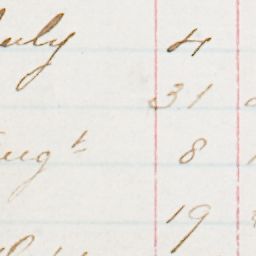 July 4
31
Augt 8
19